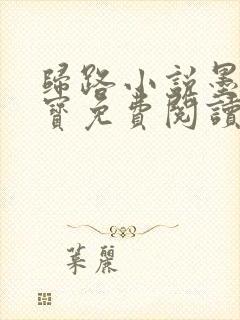 歸路小說墨
寶免費閱讀
葉麗